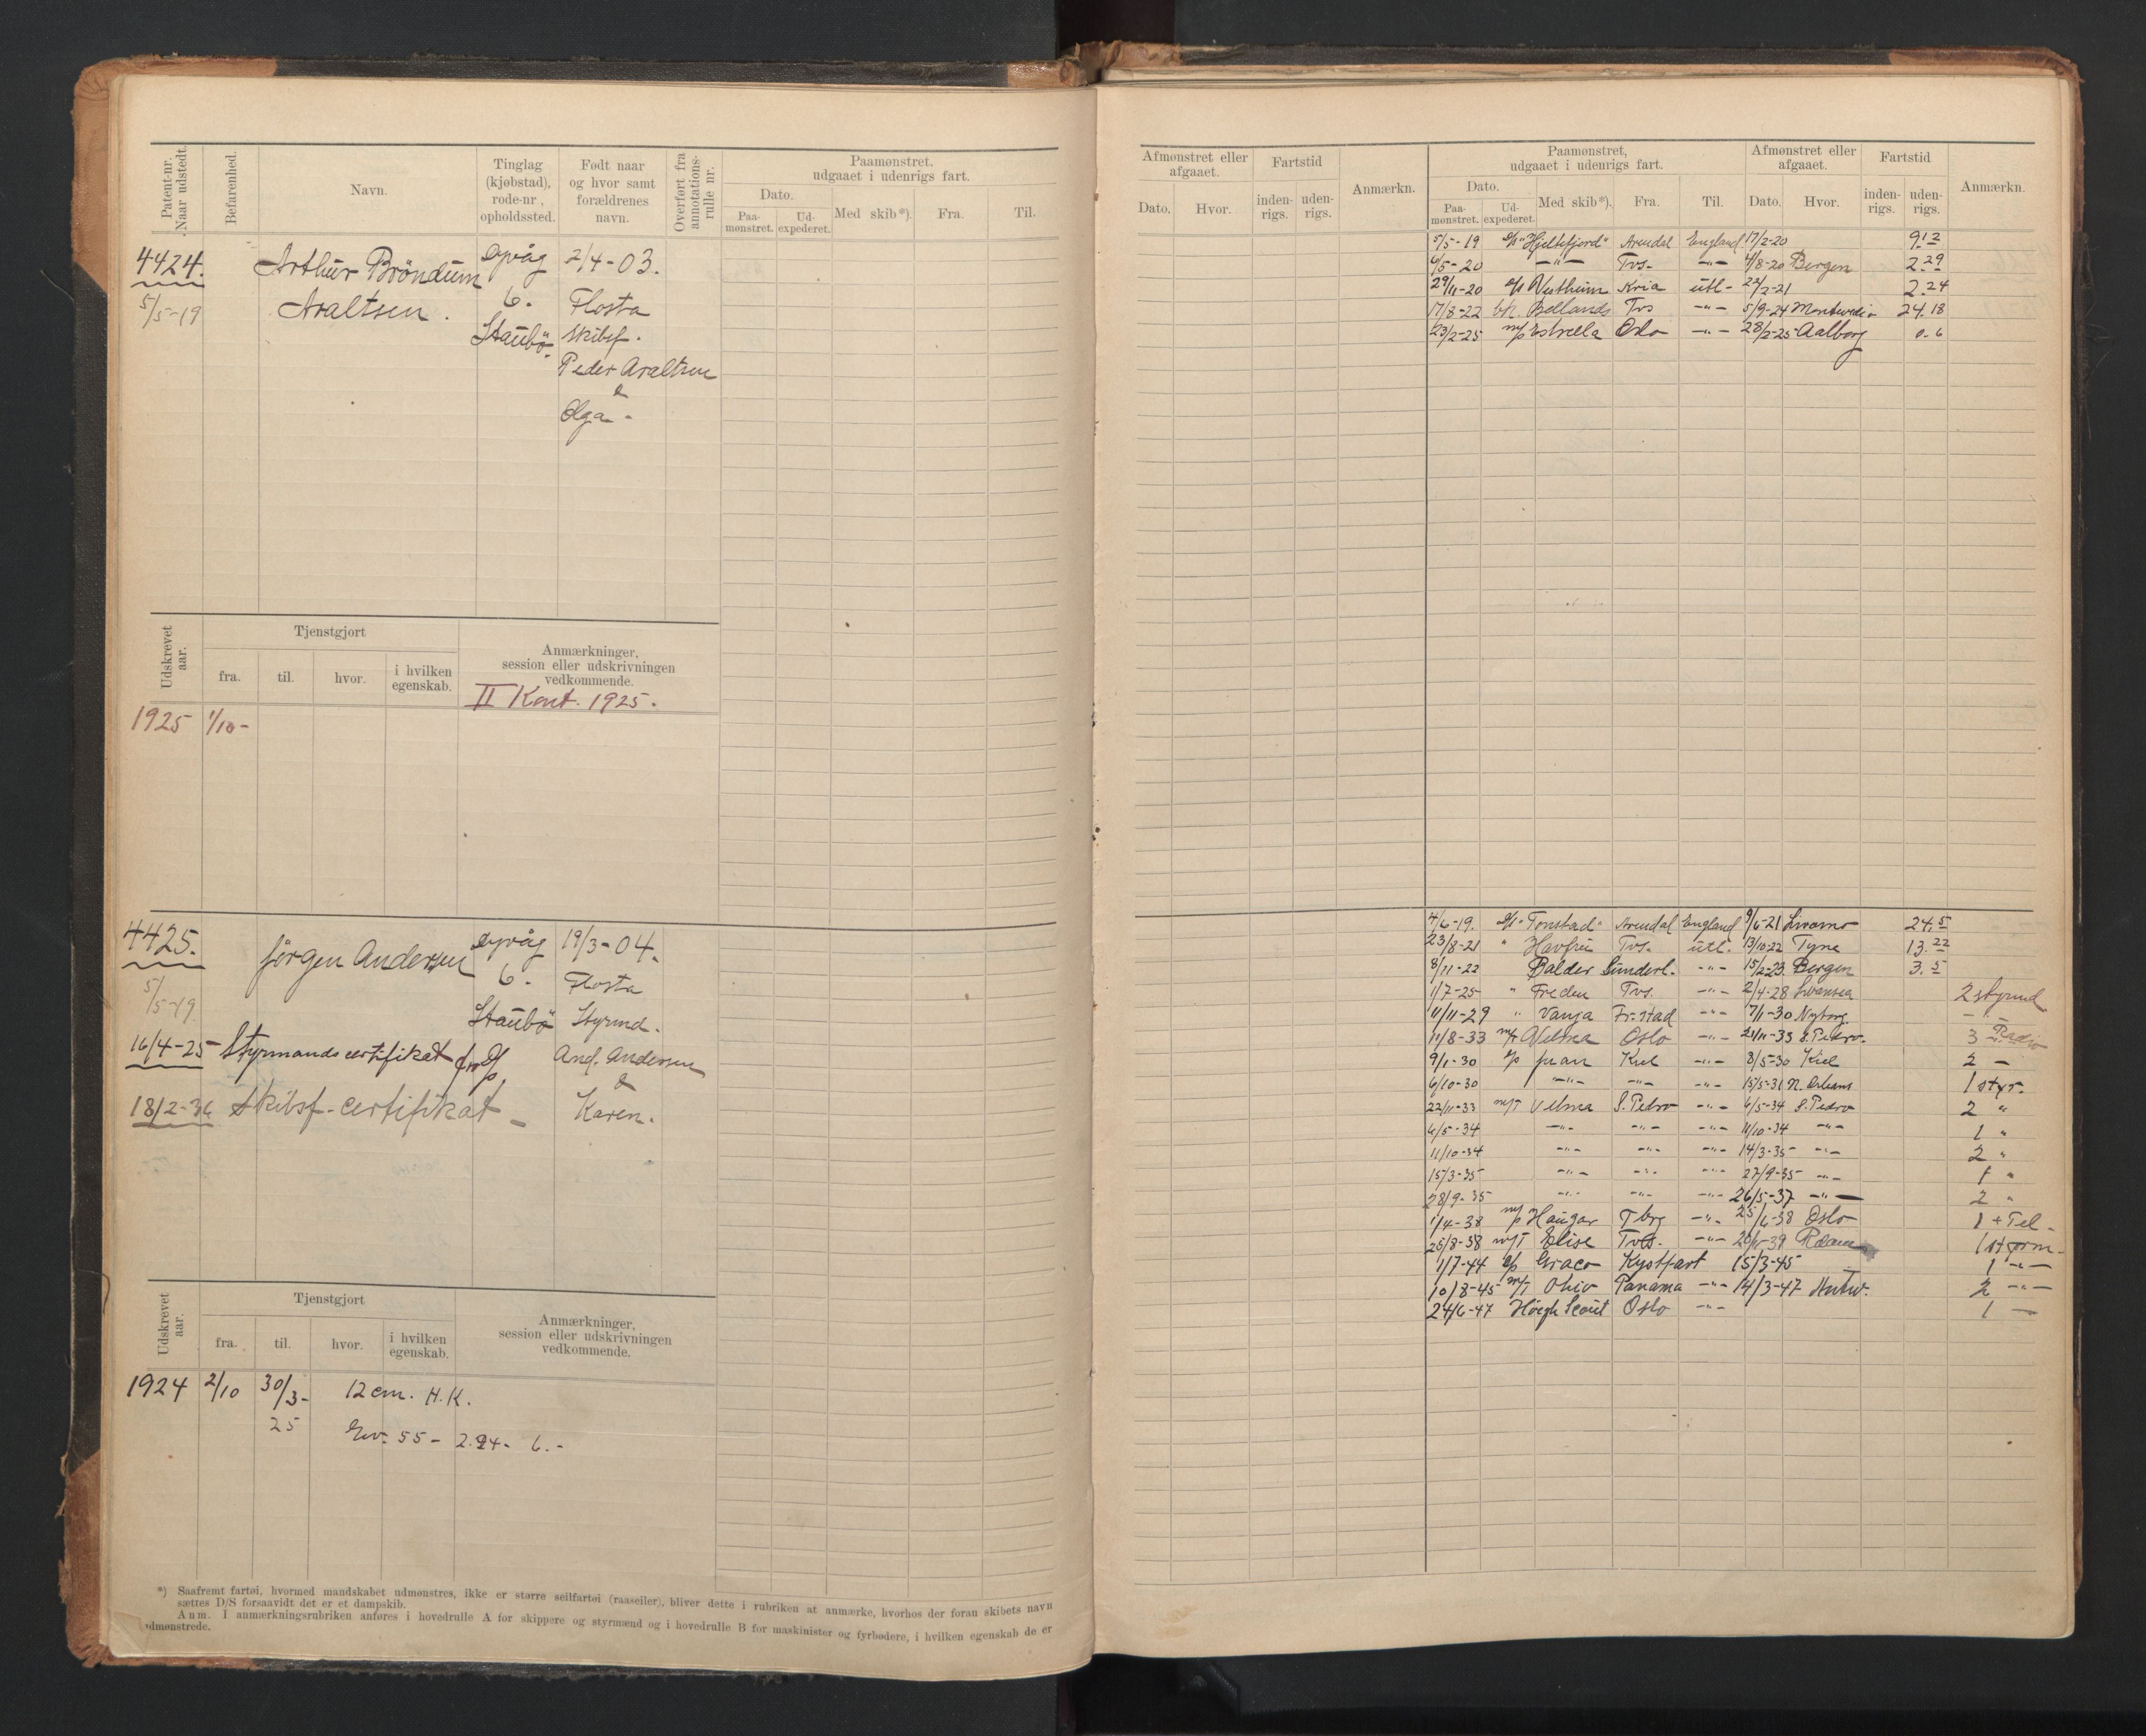 Patent-nr. Naar udstedt.
Befarenhed.
Navn.
Tinglag (kjøbstad), rode-nr, opholdssted.
Født naar og hvor samt forældrenes navn.
Overført fra annotations-rulle nr.
Paamønstret, udgaaet i udenrigs fart.
Dato.
Paa-mønstret. Ud-expederet. Med skib*). Fra. Til.
4424. Arthur Bröndum Dypvåg 2/4-03.
5/5-19 Araltsen. 6. Flosta
Staubö. Skibsf.
Peder Araltsen
&
Olga -
Udskrevet aar.
Tjenstgjort
fra. til. hvor. i hvilken egenskab.
Anmærkninger, session eller udskrivningen vedkommende.
II Kont. 1925.
1925 1/10-
4425. Jørgen Andersen Dypvåg 19/3-04.
5/5-19. 6. Flosta
Staubö Styrmd.
16/4-25 Styrmandscertifikat And. Andersen
&
18/2-36 Skibsf-certifikat - Karen.
Udskrevet aar.
Tjenstgjort
fra. til. hvor. i hvilken egenskab.
Anmærkninger, session eller udskrivningen vedkommende.
1924 2/10 30/3- 12 cm. H.K.
25 55- 2.24- 6.-
*) Saafremt fartøi, hvormed mandskabet udmønstres, ikke er større seilfartøi (raaseiler), bliver dette i rubriken at anmærke, hvorhos der foran skibets navn
sættes D/S forsaavidt det er et dampskib.
Anm. I anmærkningsrubriken anføres i hovedrulle A for skippere og styrmænd og i hovedrulle B for maskinister og fyrbødere, i hvilken egenskab de er
udmønstrede.
Afmønstret eller afgaaet.
Dato. Hvor.
Fartstid
inden-rigs. uden-rigs.
Anmærkn.
Paamønstret, udgaaet i udenrigs fart.
Dato.
Paa-mønstret. Ud-expederet. Med skib*). Fra. Til.
Afmønstret eller afgaaet.
Dato. Hvor.
Fartstid
inden-rigs. uden-rigs.
Anmærkn.
5/5-19 D/S "Hjeltefjord" Arendal England 17/2-20 9.12
6/5-20 -"- Tvs. -"- 4/8-20 Bergen 2.29
29/11-20 D/S Vestheim Kria utl- 22/2-21 2.24
17/8-22 bk. Bellands Tvs -"- 5/9-24 Montevideo 24.18
23/2-25 m/s Estrella Oslo -"- 28/2-25 Aalborg 0.6
4/6-19. D/S "Tonstad" Arendal England 9/6-21 Livorno 24.5
23/8-21 " Havfru Tvs. utl. 13/10-22 Tyne 13.22
8/11-22 Balder Sunderl. -"- 15/2-23 Bergen 3.5
1/7-25 " Freden Tvs. -"- 2/4-28 Swansea 2 styrmd
11/11-29 " Vanja Fr.stad -"- 7/1-30 Nyborg - -
11/8-33 m/T Velma Oslo -"- 21/11-33 S. Pedro. 3 - Radio
9/1-30 D/S Juan Kiel -"- 8/5-30 Kiel 2 -
6/10-30 -"- -"- -"- 15/5-31 N. Orleans 1 styr.
22/11-33 m/T Velma S. Pedro -"- 6/5-34 S. Pedro 2 "
6/5-34 -"- -"- -"- 11/10-34 -"- 1 "
11/10-34 -"- -"- -"- 14/3-35 -"- 2 "
15/3-35 -"- -"- -"- 27/9-35 -"- 1 "
28/9-35 -"- -"- -"- 26/5-37 -"- 2 "
1/4-38 m/s Haugar Tbrg -"- 25/6-38 Oslo 1 + Tel-
25/8-38 m/T Elise Tvs. -"- R.dam 1 styrm-
1/7-44 D/S Kystfart 15/3-45 1 -"-
10/8-45 m/T Ohio Panama -"- 14/3-47 Antw. 2 -"-
24/6-47 Höegh Scout Oslo -"- 1 -